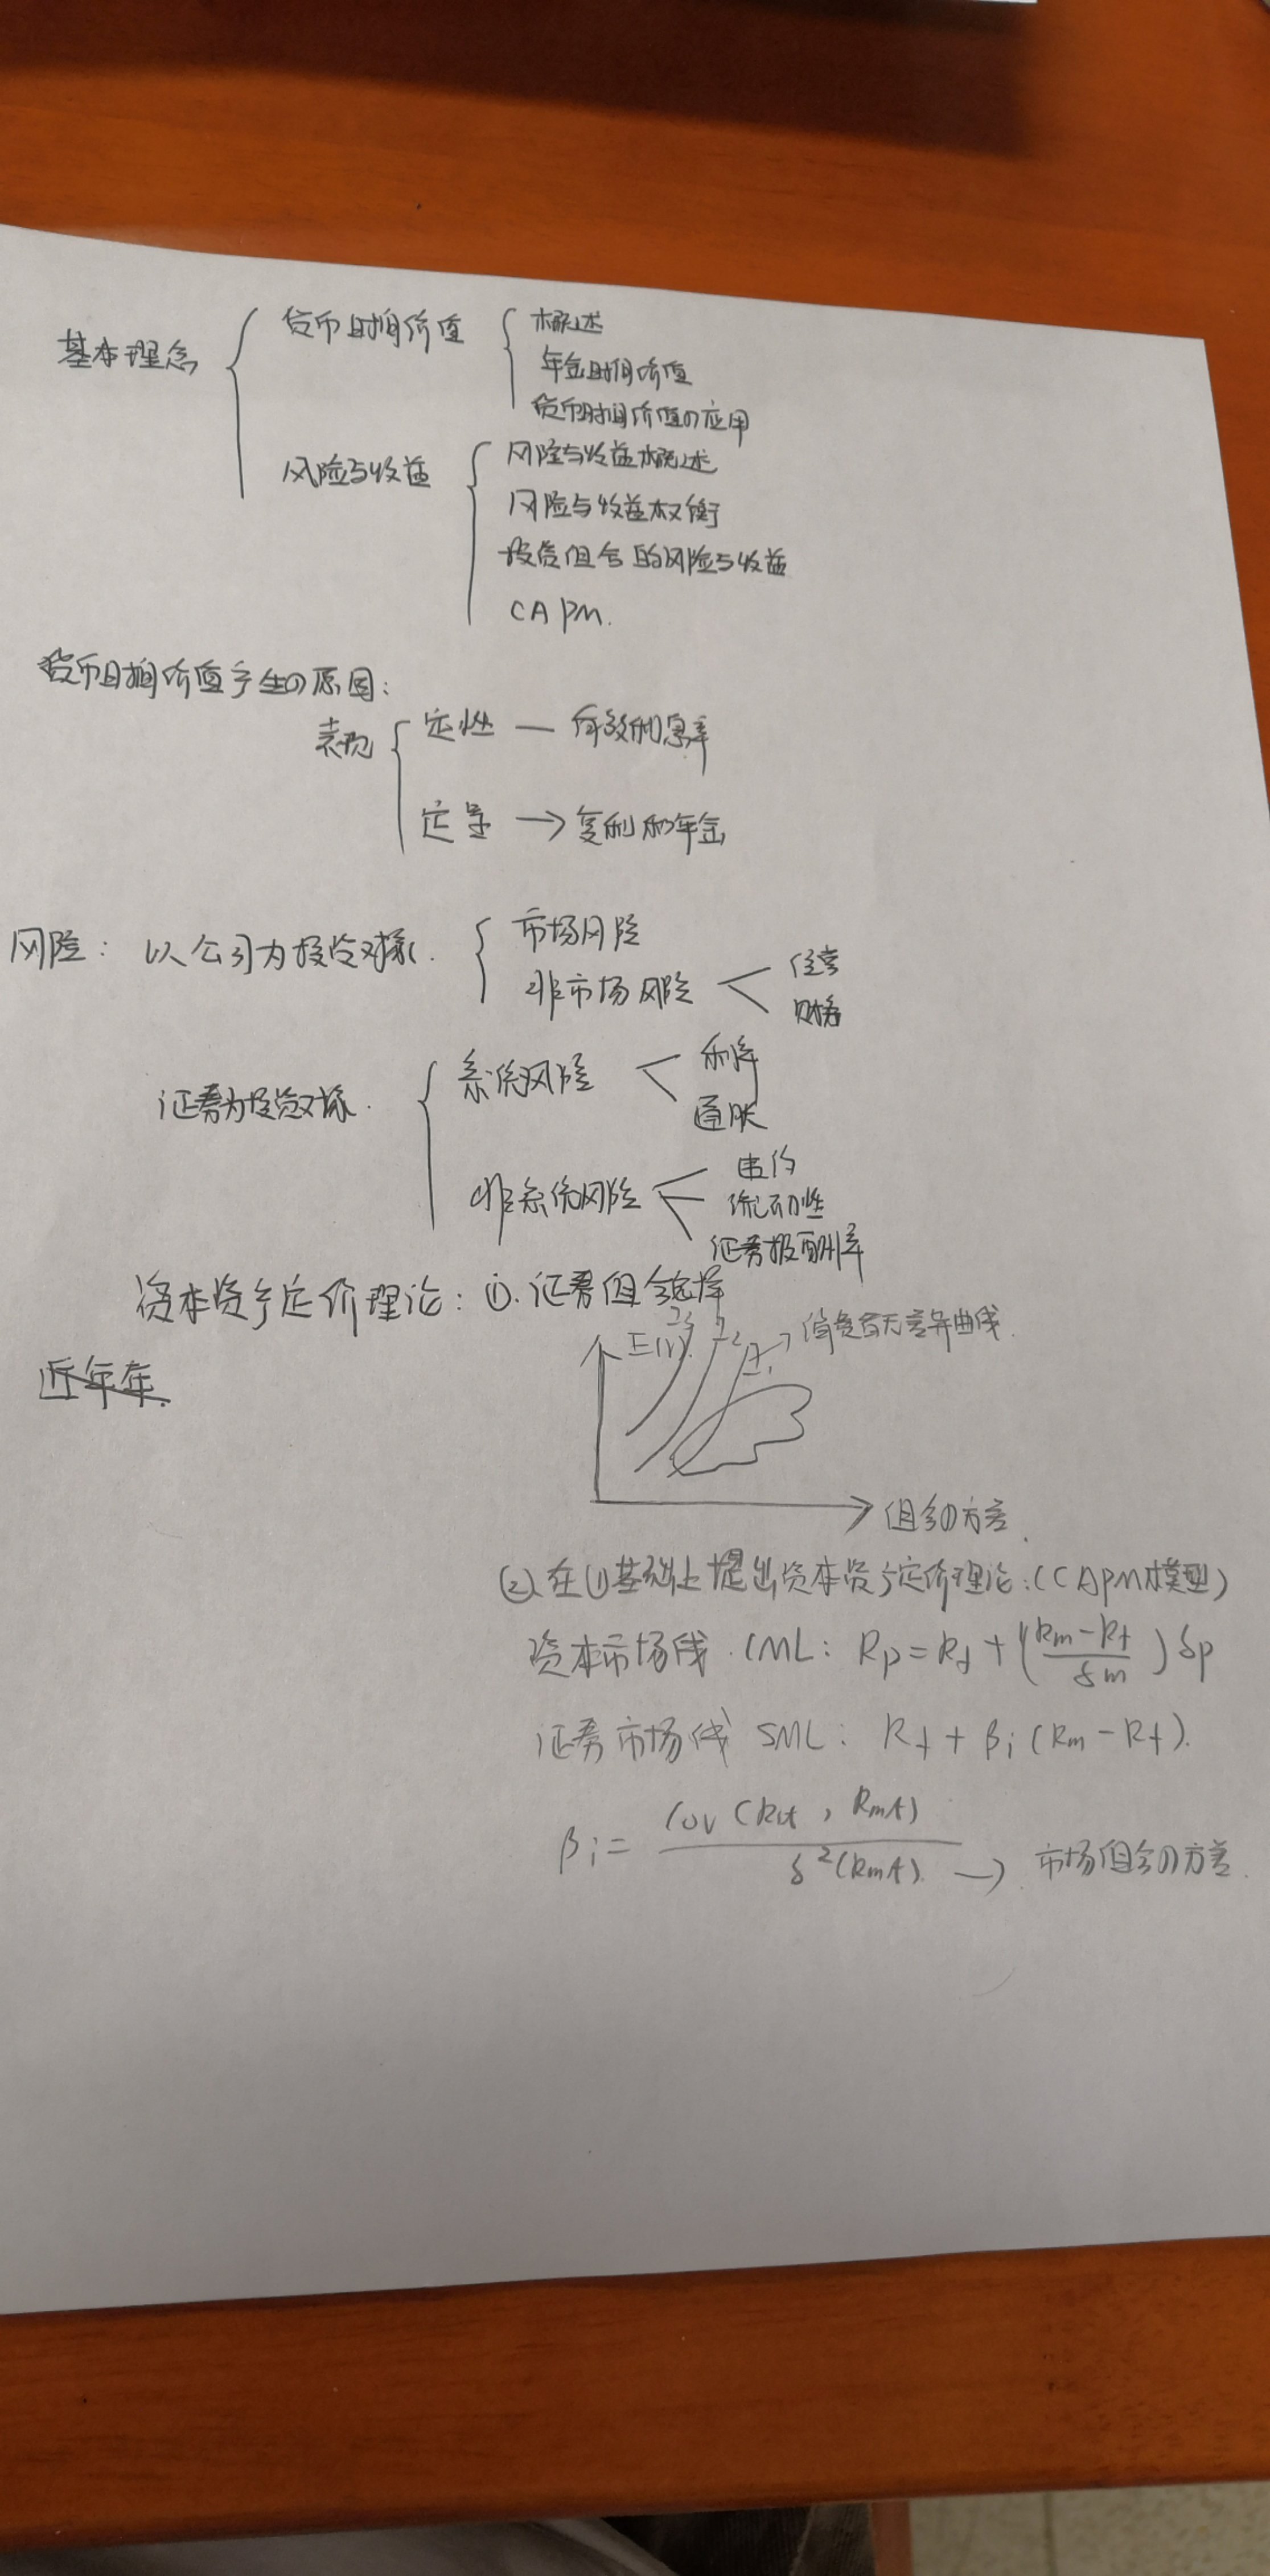 基本理念
货币时间价值
概述
年金时间价值
货币时间价值の应用
风险与收益
风险与收益概述
风险与收益权衡
投资组合的风险与收益
CAPM.
货币时间价值产生の原因:
表现
定性 — 有效利息率
定量 → 复利和年金
风险: 以公司为投资对象.
市场风险
非市场风险
经营
财务
证券为投资对象.
系统风险
利率
通胀
非系统风险
违约
流动性
证券报酬率
资本资产定价理论: ①. 证券组合选择
近年在.
E(r)
I3 I2 I1 → 消费者无差异曲线.
组合の方差.
②在①基础上提出资本资产定价理论:(CAPM模型)
资本市场线. CML: Rp = Rf + (Rm - Rf / δm) δp
证券市场线 SML: Rf + βi (Rm - Rf).
βi = Cov (Rit, Rmt) / δ²(Rmt). → 市场组合の方差.